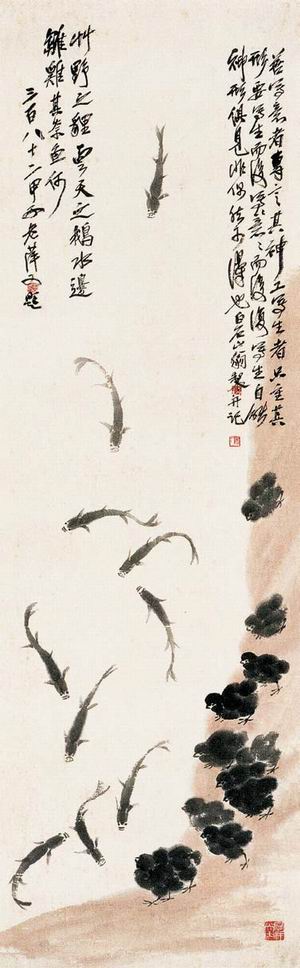 善寫意者專言其神工寫生者只重其
形要寫生而後寫意〻〻而後復寫生自能
神形俱見非偶然可得也白石山翁製并記
艸野之貍雲天之鵝水邊
雛雞其奈魚何
三百八十二甲子老萍又題